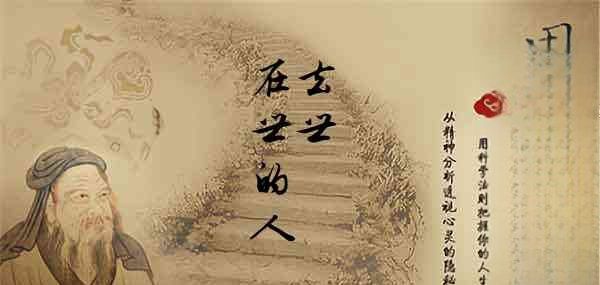 用科学法则把握你的人生
从精神分析透视心灵的隐秘
去世
在世的人